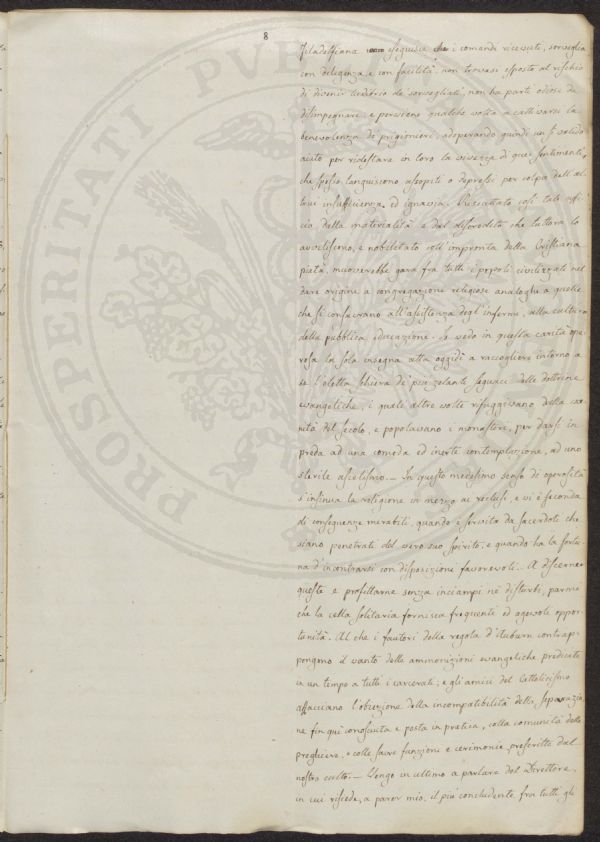 8
Filadelfiana eseguisce che i comandi ricevuti, sorveglia
con diligenza, e con facilità, non trovasi esposto al rischio
di divenir ludibrio de' sorvegliati, non ha parti odiose da
disimpegnare, e perviene qualche volta a cattivarsi la
benevolenza de' prigionieri, adoperando quindi un sì valido
aiuto per ridestare in loro la vivezza di quei sentimenti,
che spesso languiscono assopiti o depressi per colpa dell'al-
trui insufficienza, ed ignavia. Riscattato così tale uffi-
cio dalla materialità e dal discredito che tuttora lo
avviliscono, e nobilitato coll'impronta della Cristiana
pietà, muoverebbe gara fra tutti i popoli civilizzati nel
dare origine a congregazione religiose analoghe a quelle
che si consacrano all'assistenza degl'infermi, alla cultura
della pubblica educazione. Io vedo in questa carità ope-
rosa la sola insegna atta oggidì a raccogliere intorno a
se l'eletta schiera de' più zelanti seguaci delle dottrine
evangeliche, i quali altre volte rifuggivano della va-
nità del secolo, e popolavano i monasteri, per darsi in
preda ad una comoda ed inerte contemplazione, ad uno
sterile ascetismo. — In questo medesimo senso di operosità
s'insinua la religione in mezzo ai reclusi, e vi è feconda
di conseguenze mirabili, quando è servita da sacerdoti che
siano penetrati del vero suo spirito, e quando ha la fortu-
na d'incontrarsi con disposizione favorevoli. — A discerne
queste e profittarne senza inciampi nè disturbi, parmi
che la cella solitaria fornisca frequenti ed agevole oppor-
tunità. Al che i fautori della regola d'Auburn contrap-
pongono il vanto delle ammonizioni evangeliche predicate
in un tempo a tutti i carcerati; e gli amici del Cattolicismo
affacciano l'obiezione della incompatibilità della separazio-
ne fin qui conosciuta e posta in pratica, colla comunità delle
preghiere, e colle sacre funzioni e cerimonie prescritte dal
nostro culto. — Vengo in ultimo a parlare del Direttore,
in cui risiede, a parer mio, il più concludente fra tutti gli
PROSPERITATI PVBLICAE